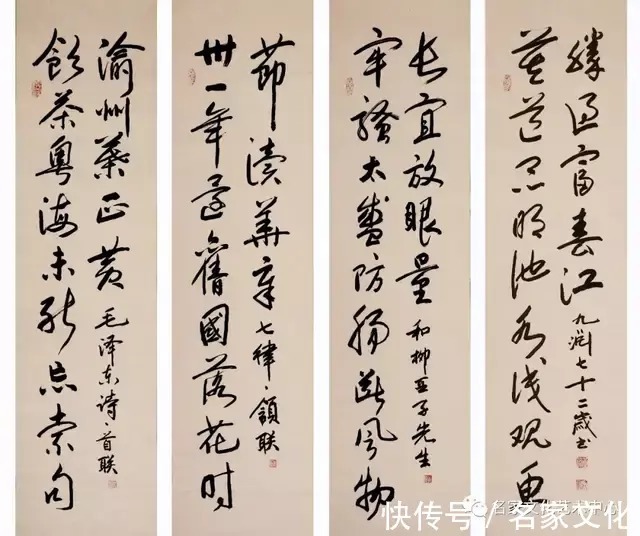 飲茶粤海未能忘索句
渝州葉正黄 毛泽东诗·首联
卅一年還舊國落花时
節读華章 七律·頷联
牢骚太盛防肠断风物
长宜放眼量 和柳亚子先生
莫道昆明池水浅观鱼
胜过富春江 九渊七十二岁书
名家文化艺术中心
快传号/名家文化